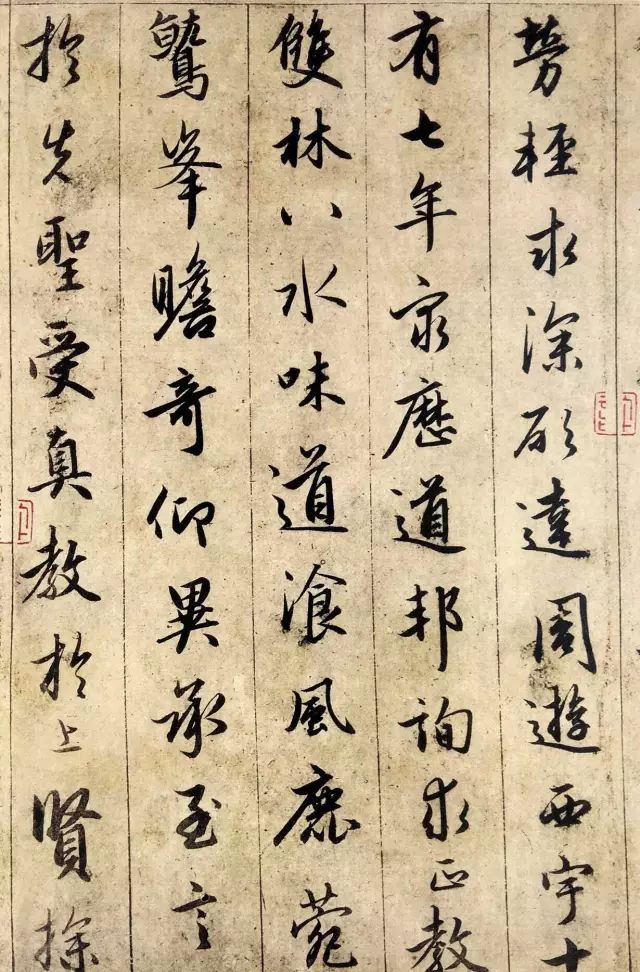 勞輕求深願達周遊西宇十
有七年窮歷道邦詢求正教
雙林八水味道湌風鹿菀
鷲峯瞻奇仰異承至言
於先聖受真教於上賢探